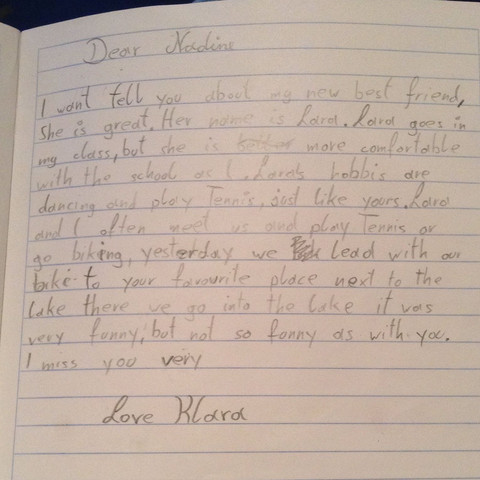 Dear Nadine
I want tell you about my new best friend,
She is great. Her name is Lara. Lara goes in
my class, but she is better more comfortable
with the school as I. Lara's hobbis are
dancing and play Tennis, just like yours. Lara
and I often meet us and play Tennis or
go biking, yesterday we lead with our
bike to your favourite place next to the
Lake there we go into the Lake it was
very funny, but not so funny as with you.
I miss you very
Love Klara